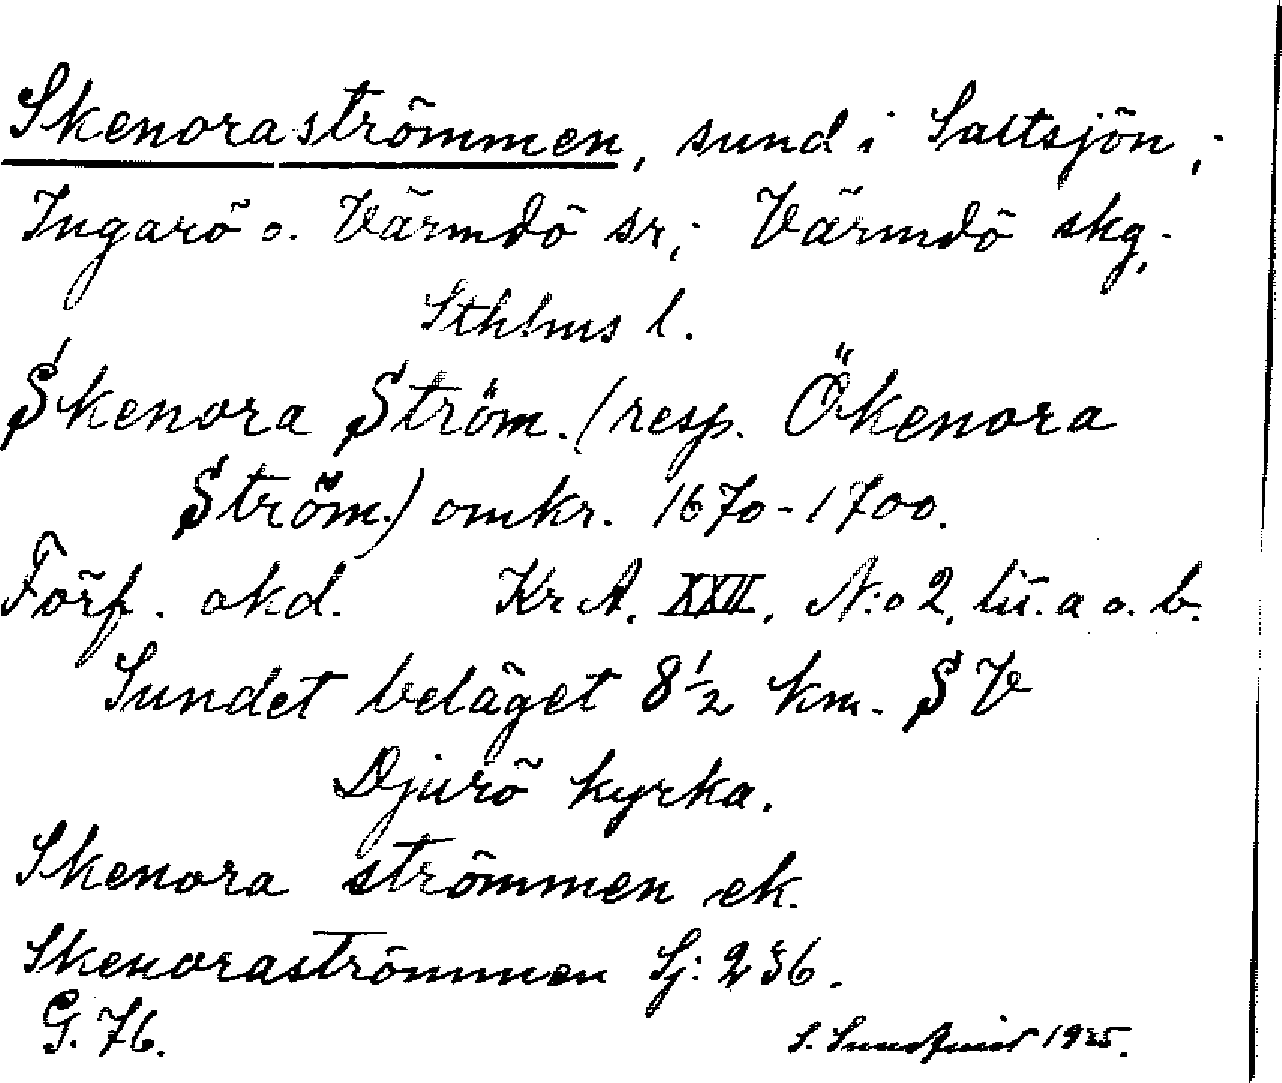 Skenoraströmmen, sund i Saltsjön,;
Ingarö o. Värmdö sr,; Värmdö skg,;
Sthlms l.
Skenora Ström. (resp. Ökenora
Ström.) omkr. 1670-1700.
Förf. okd. Kr A. XXII. N:o 2. lit. a o. b.
Sundet beläget 8½ km. SV
Djurö kyrka.
Skenora strömmen ek.
Skenoraströmmen Sj: 236.
G. 76.
S. Sundqvist 1925.